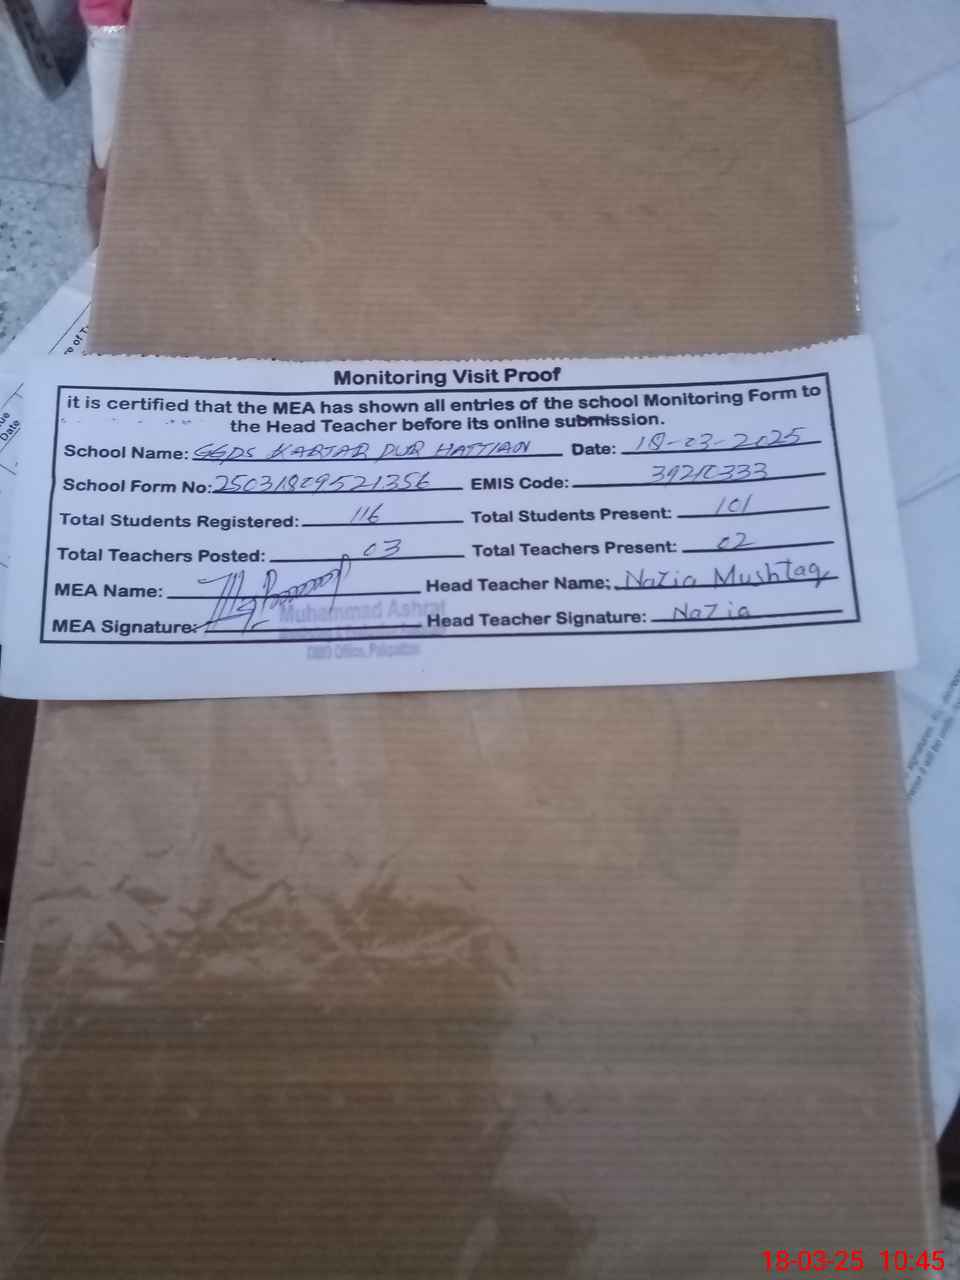 Monitoring Visit Proof
it is certified that the MEA has shown all entries of the school Monitoring Form to
the Head Teacher before its online submission.
School Name: GGPS KARTAR PUR HATTIAN Date: 18-03-2025
School Form No: 25031809521356 EMIS Code: 39210333
Total Students Registered: 116 Total Students Present: 101
Total Teachers Posted: 03 Total Teachers Present: 02
MEA Name: Head Teacher Name: Nazia Mushtaq
MEA Signature: Head Teacher Signature: Nazia
Muhammad Ashraf
Office, Pakpattan
Date
18-03-25 10:45